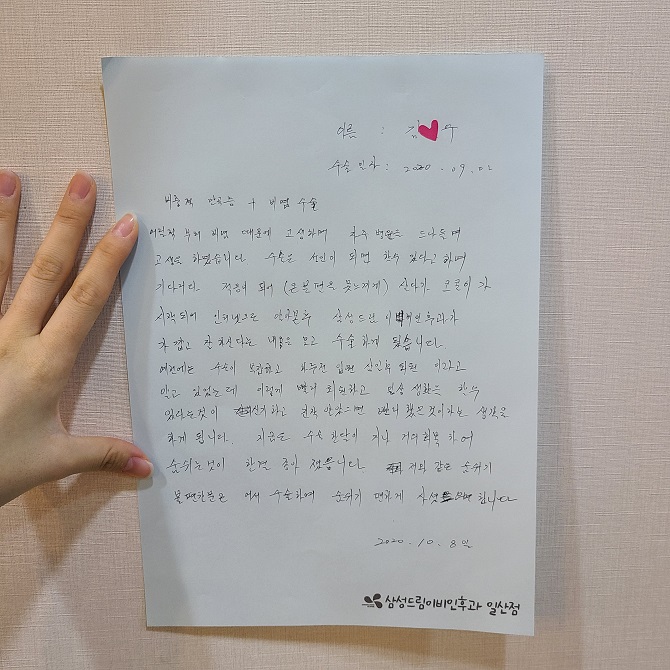 이름 : 김 수
수술 일자 : 2020. 09. 02
비중격 만곡증 + 비염 수술
어릴적 부터 비염 때문에 고생하며 자주 병원을 드나들며
고생을 하였습니다. 수술은 성인이 되면 할수 있다고 하며
기다리다. 적응이 되어 (큰불편을 못느끼게) 살다가 코골이가
시작되어 인터넷으로 알아본후 삼성드림이비인후과가
가깝고 잘 하신다는 내용을 보고 수술하게 됐습니다.
예전에는 수술이 복잡하고 입원 회원 이라고
알고 있었는데 이렇게 빨리 회원하고 일상 생활을 할수
있다는것이 신기하고 진작 알았으면 빨리 했을것이라는 생각을
하게 됩니다. 지금은 수술 한달이 지나 거의회복 하여
숨쉬는것이 한결 좋아 졌습니다 저와 같은 숨쉬기
불편한분은 어서 수술하여 숨쉬기 편하게 합니다
2020. 10. 8일
삼성드림이비인후과 일산점